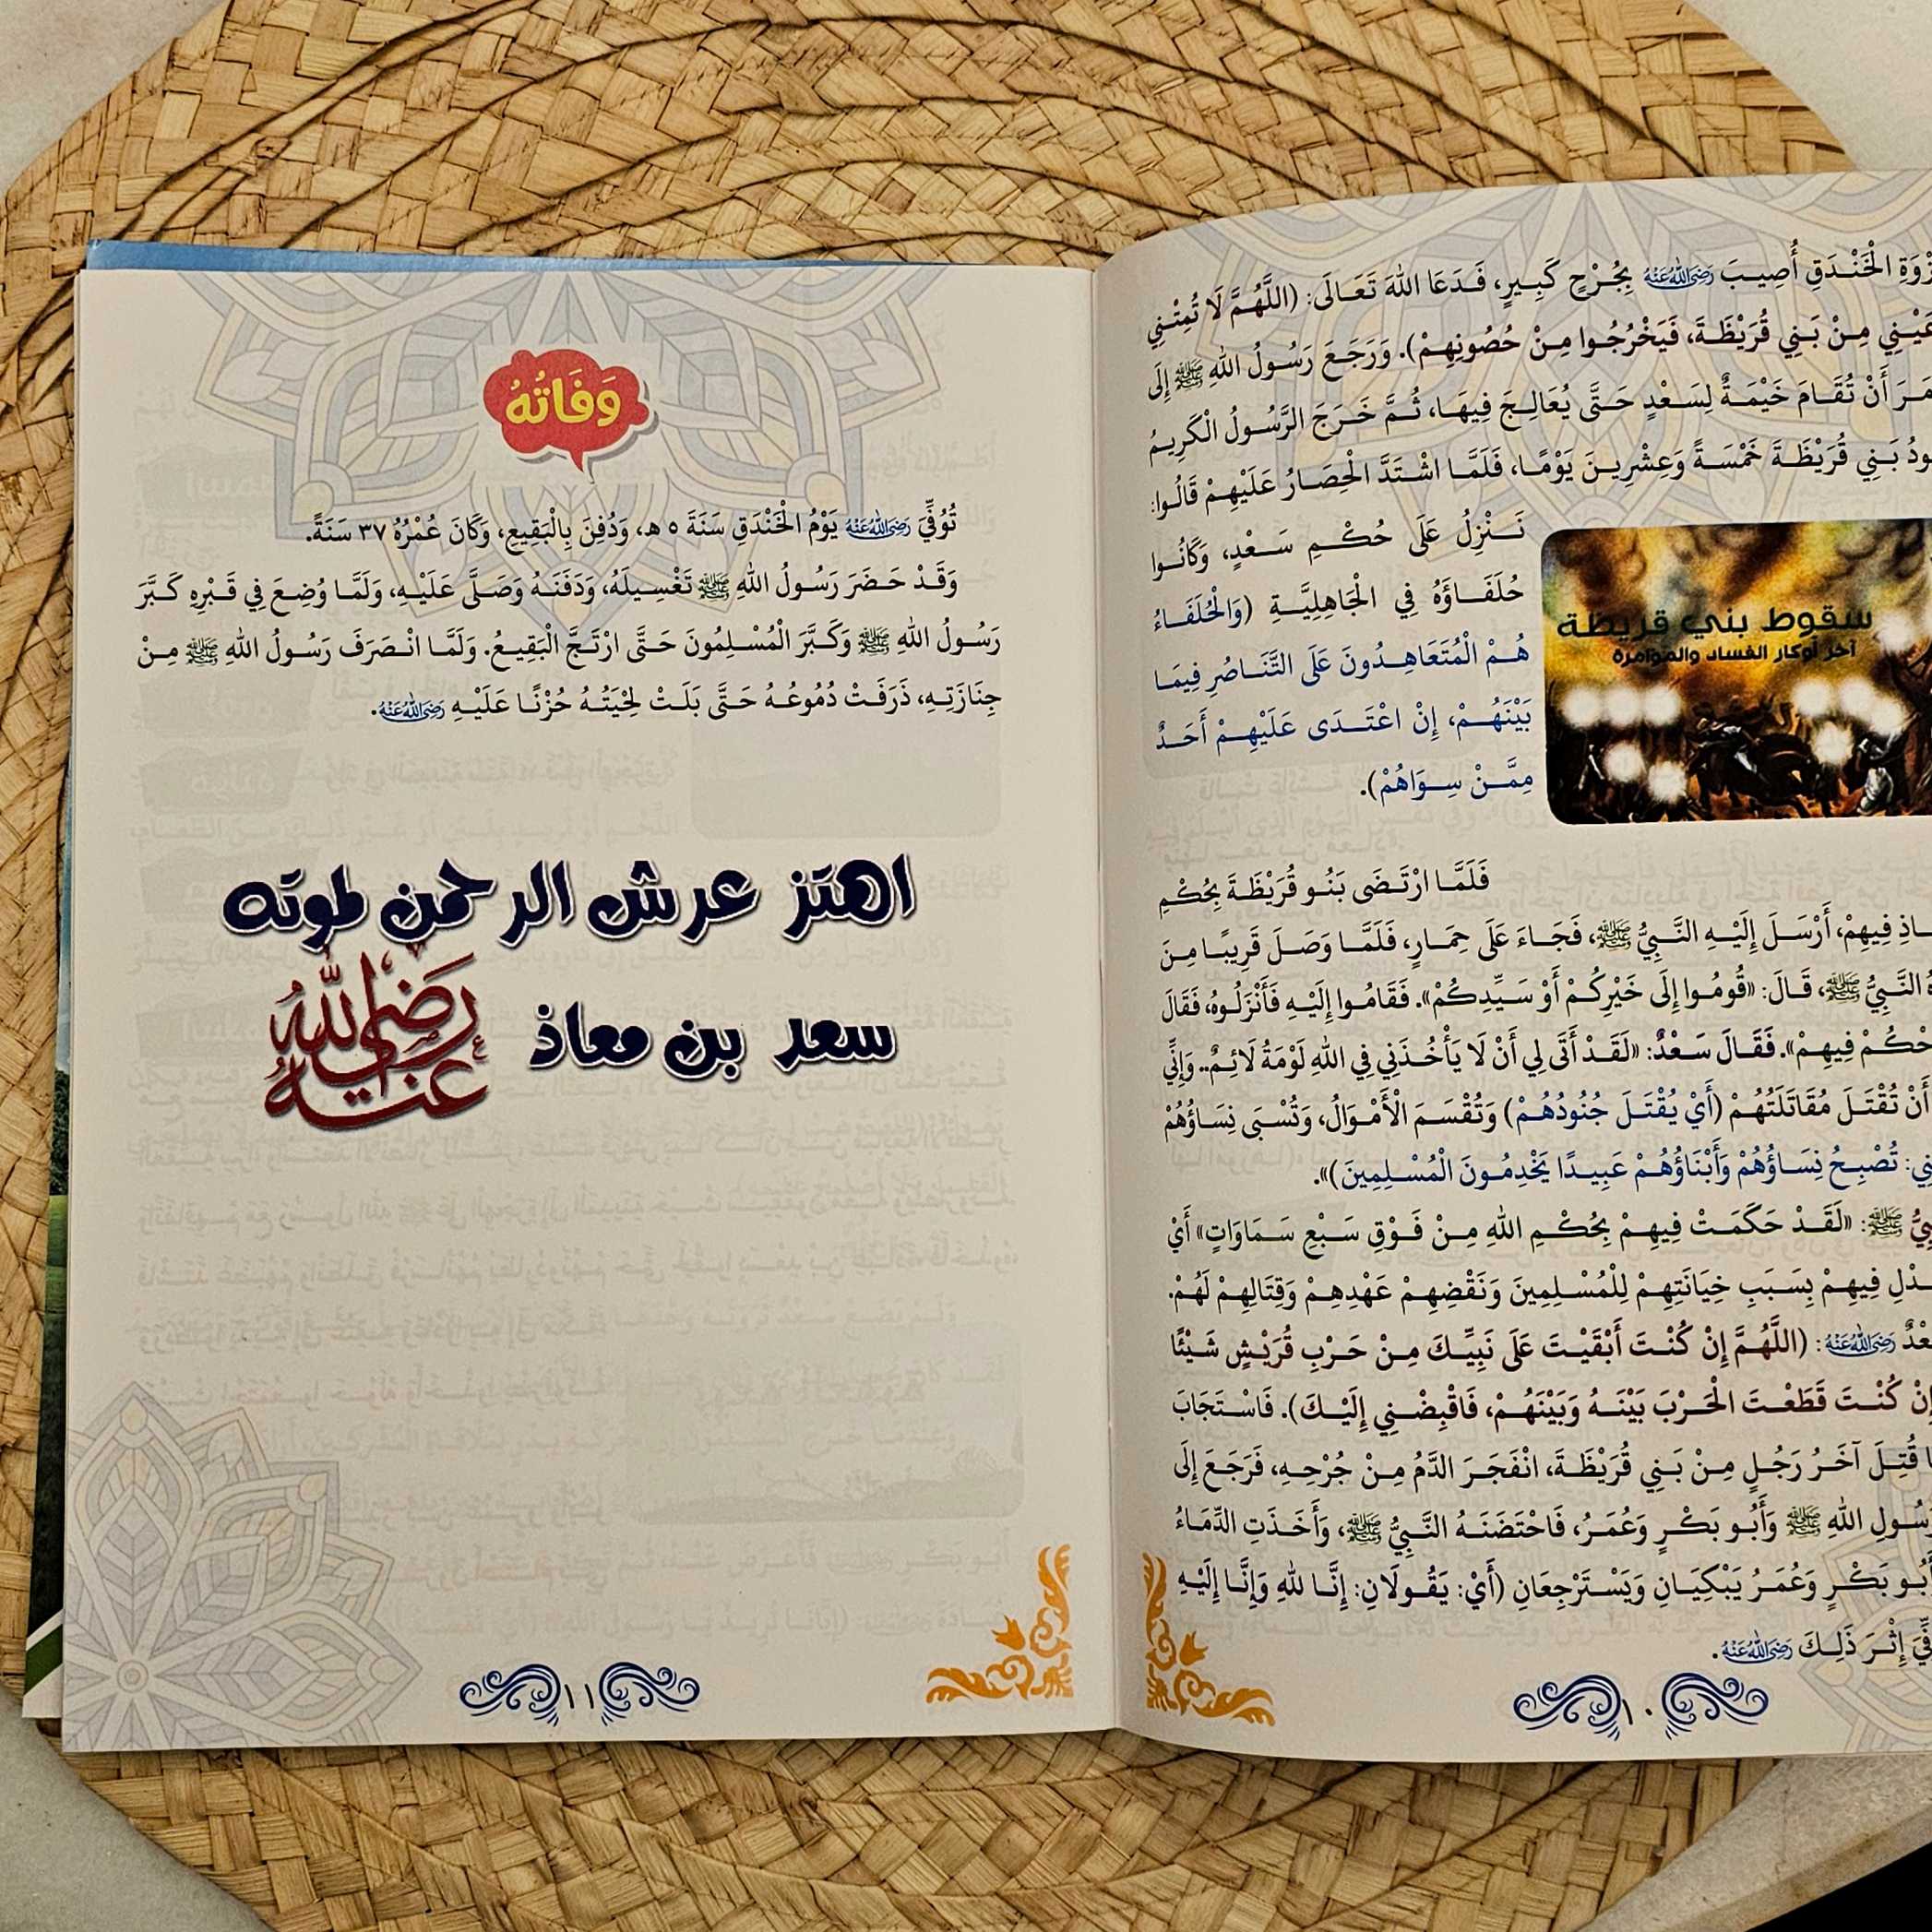 الْخَنْدَقِ أُصِيبَ رَضِيَ اللهُ عَنْهُ بِجُرْحٍ كَبِيرٍ، فَدَعَا اللهَ تَعَالَى: (اللَّهُمَّ لَا تُمِتْنِي
مِنْ بَنِي قُرَيْظَةَ، فَيَخْرُجُوا مِنْ حُصُونِهِمْ). وَرَجَعَ رَسُولُ اللهِ ﷺ إِلَى
أَنْ تُقَامَ خَيْمَةٌ لِسَعْدٍ حَتَّى يُعَالِجَ فِيهَا، ثُمَّ خَرَجَ الرَّسُولُ الْكَرِيمُ
بَنِي قُرَيْظَةَ خَمْسَةً وَعِشْرِينَ يَوْمًا، فَلَمَّا اشْتَدَّ الْحِصَارُ عَلَيْهِمْ قَالُوا:
نَنْزِلُ عَلَى حُكْمِ سَعْدٍ، وَكَانُوا
حُلَفَاؤَهُ فِي الْجَاهِلِيَّةِ (وَالْحُلَفَاءُ
هُمْ الْمُتَعَاهِدُونَ عَلَى التَّنَاصُرِ فِيمَا
بَيْنَهُمْ، إِنْ اعْتَدَى عَلَيْهِمْ أَحَدٌ
مِمَّنْ سِوَاهُمْ).
سقوط بني قريظة
آخر أوكار الفساد والمؤامرة
فَلَمَّا ارْتَضَى بَنُو قُرَيْظَةَ بِحُكْمِ
فِيهِمْ، أَرْسَلَ إِلَيْهِ النَّبِيُّ ﷺ، فَجَاءَ عَلَى حِمَارٍ، فَلَمَّا وَصَلَ قَرِيبًا مِنَ
النَّبِيُّ ﷺ، قَالَ: «قُومُوا إِلَى خَيْرِكُمْ أَوْ سَيِّدِكُمْ». فَقَامُوا إِلَيْهِ فَأَنْزَلُوهُ، فَقَالَ
فِيهِمْ». فَقَالَ سَعْدٌ: «لَقَدْ أَتَى لِي أَنْ لَا يَأْخُذَنِي فِي اللهِ لَوْمَةُ لَائِمٌ.. وَإِنِّي
أَنْ تُقْتَلَ مُقَاتَلَتُهُمْ (أَيْ يُقْتَلَ جُنُودُهُمْ) وَتُقْسَمَ الْأَمْوَالُ، وَتُسْبَى نِسَاؤُهُمْ
تُصْبِحُ نِسَاؤُهُمْ وَأَبْنَاؤُهُمْ عَبِيدًا يَخْدِمُونَ الْمُسْلِمِينَ)».
ﷺ: «لَقَدْ حَكَمَتْ فِيهِمْ بِحُكْمِ اللهِ مِنْ فَوْقِ سَبْعِ سَمَاوَاتٍ» أَيْ
فِيهِمْ بِسَبَبِ خِيَانَتِهِمْ لِلْمُسْلِمِينَ وَنَقْضِهِمْ عَهْدِهِمْ وَقِتَالِهِمْ لَهُمْ.
رَضِيَ اللهُ عَنْهُ: (اللَّهُمَّ إِنْ كُنْتَ أَبْقَيْتَ عَلَى نَبِيِّكَ مِنْ حَرْبِ قُرَيْشٍ شَيْئًا
كُنْتَ قَطَعْتَ الْحَرْبَ بَيْنَهُ وَبَيْنَهُمْ، فَاقْبِضْنِي إِلَيْكَ). فَاسْتَجَابَ
قُتِلَ آخَرُ رَجُلٍ مِنْ بَنِي قُرَيْظَةَ، انْفَجَرَ الدَّمُ مِنْ جُرْحِهِ، فَرَجَعَ إِلَى
اللهِ ﷺ وَأَبُو بَكْرٍ وَعُمَرُ، فَاحْتَضَنَهُ النَّبِيُّ ﷺ، وَأَخَذَتِ الدِّمَاءُ
بَكْرٍ وَعُمَرُ يَبْكِيَانِ وَيَسْتَرْجِعَانِ (أَيْ: يَقُولَانِ: إِنَّا لله وَإِنَّا إِلَيْهِ
إِثْرَ ذَلِكَ رَضِيَ اللهُ عَنْهُ.
١٠
وَفَاتُهُ
تُوُفِّيَ رَضِيَ اللهُ عَنْهُ يَوْمُ الْخَنْدَقِ سَنَةَ ٥ هـ، وَدُفِنَ بِالْبَقِيعِ، وَكَانَ عُمْرُهُ ٣٧ سَنَةً.
وَقَدْ حَضَرَ رَسُولُ اللهِ ﷺ تَغْسِيلَهُ، وَدَفَنَهُ وَصَلَّى عَلَيْهِ، وَلَمَّا وُضِعَ فِي قَبْرِهِ كَبَّرَ
رَسُولُ اللهِ ﷺ وَكَبَّرَ الْمُسْلِمُونَ حَتَّى ارْتَجَّ الْبَقِيعُ. وَلَمَّا انْصَرَفَ رَسُولُ اللهِ ﷺ مِنْ
جِنَازَتِهِ، ذَرَفَتْ دُمُوعُهُ حَتَّى بَلَتْ لِحْيَتُهُ حُزْنًا عَلَيْهِ رَضِيَ اللهُ عَنْهُ.
اهتز عرش الرحمن لموته
سعد بن معاذ رضي الله عنه
١١